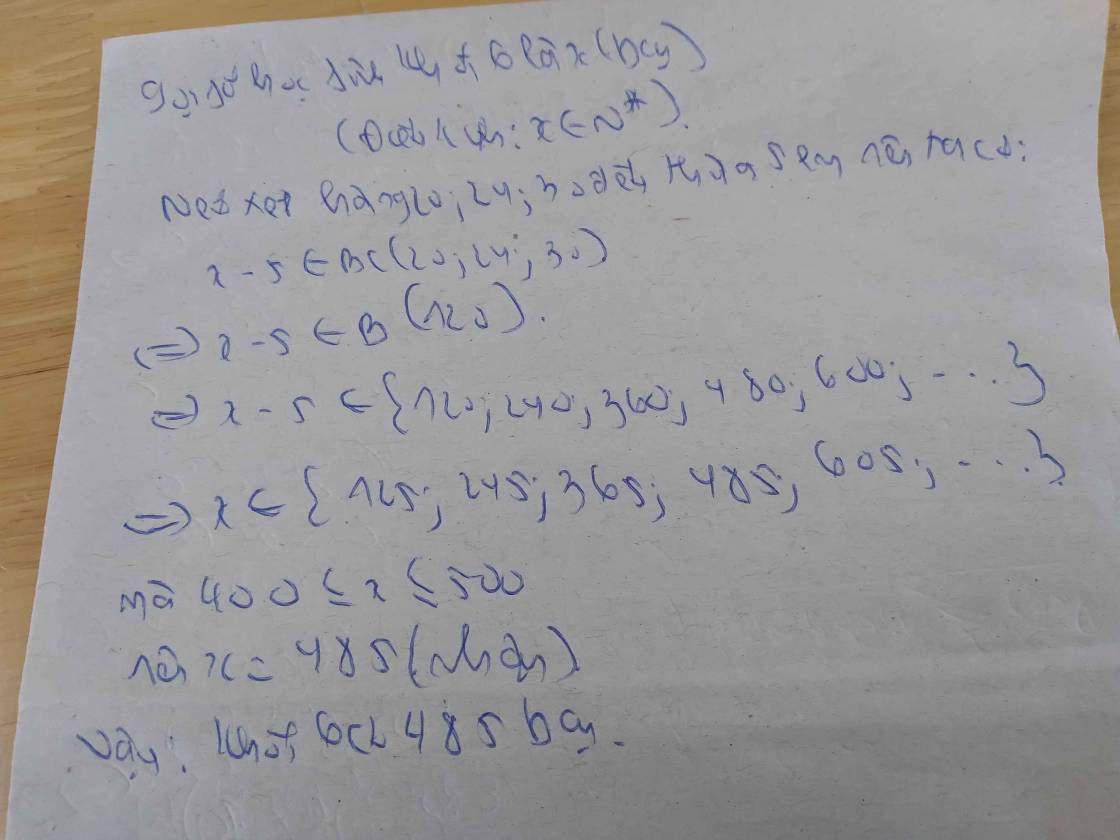 Gọi số học sinh khối 6 là x (bạn)
(Điều kiện: x ∈ N*).
Nếu xếp hàng 20; 24; 30 đều thừa 5 em nên ta có:
x - 5 ∈ BC(20; 24; 30)
=> x - 5 ∈ B(120).
=> x - 5 ∈ {120; 240; 360; 480; 600; ....}
=> x ∈ {125; 245; 365; 485; 605; ....}
mà 400 ≤ x ≤ 500
nên x = 485 (nhận)
Vậy: khối 6 có 485 bạn.